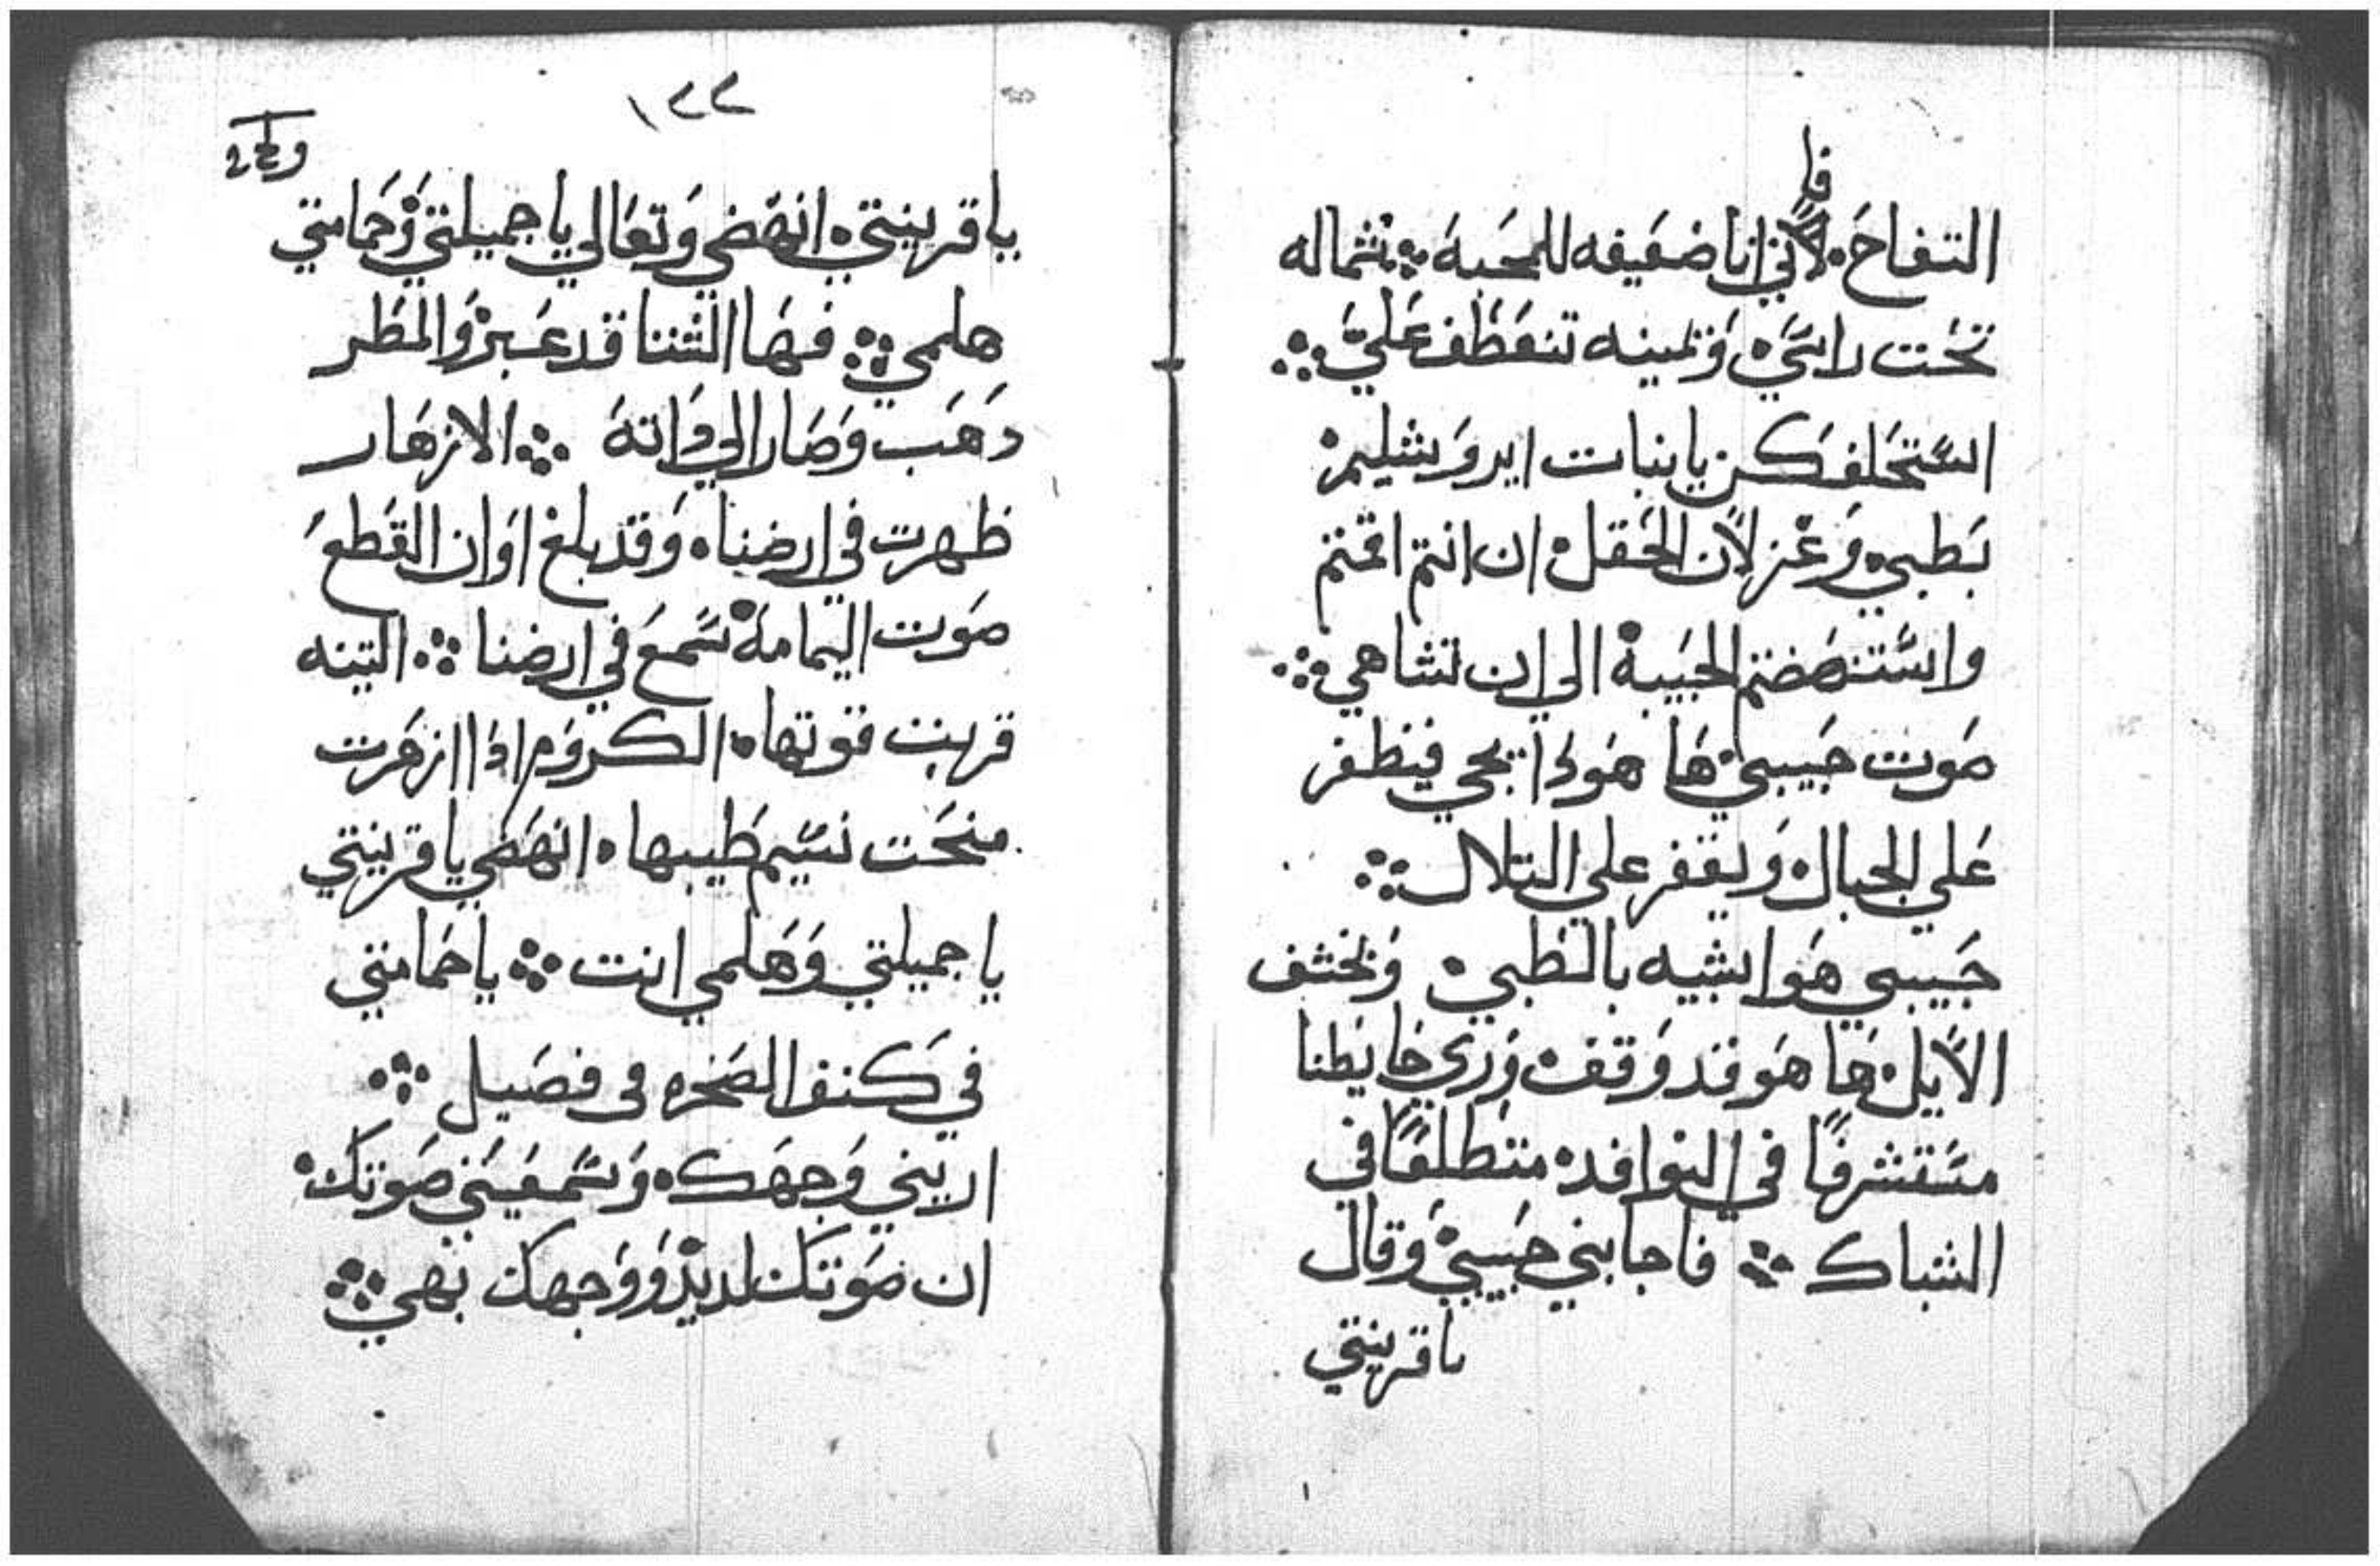 فا
التفاح۰ لاني انا ضعيفه للمحبة ܀ شماله
تحت راسي۰ ويمينه تنعطف علي ܀
استحلفكن يا بنات ايروشليم۰
بظبي۰ وغزلان الحقل۰ ان انتم اقمتم
واستنهضتم الحبيبة الي ان تشا هي ܀
صوت حبيبي۰ ها هودا يجي فيظفر
علي الجبال۰ ويقفز علي التلال ܀
حبيبي هوا شبيه بالظبي۰ وبخشف
الايل۰ ها هو قد وقف۰ وري حايطنا
مستشرفًا في النوافد۰ متطلعًا في
الشباك ܀ فاجابني حبيبي وقال
ياقرينتي
١٢٢
يا قرينتي۰ انهضي وتعالي يا جميلتي وحمامتي
هلمي ܀ فها الشتا قد عبر۰ والمطر
دهب وصار الي داته ܀ الازهار
ظهرت في ارضنا۰ وقد بلغ اوان القطع
صوت اليمامة سمع في ارضنا ܀ التينه
قربت قوتها۰ الكروم ادا ازهرت
منحت نسيم طيبها۰ انهضي يا قرينتي
يا جميلتي وهلمي انت ܀ يا حمامتي
في كنف الصخره في فصيل ܀
اريني وجهك۰ وسمعيني صوتك۰
ان صوتك لديد۰ ووجهك بهي ܀